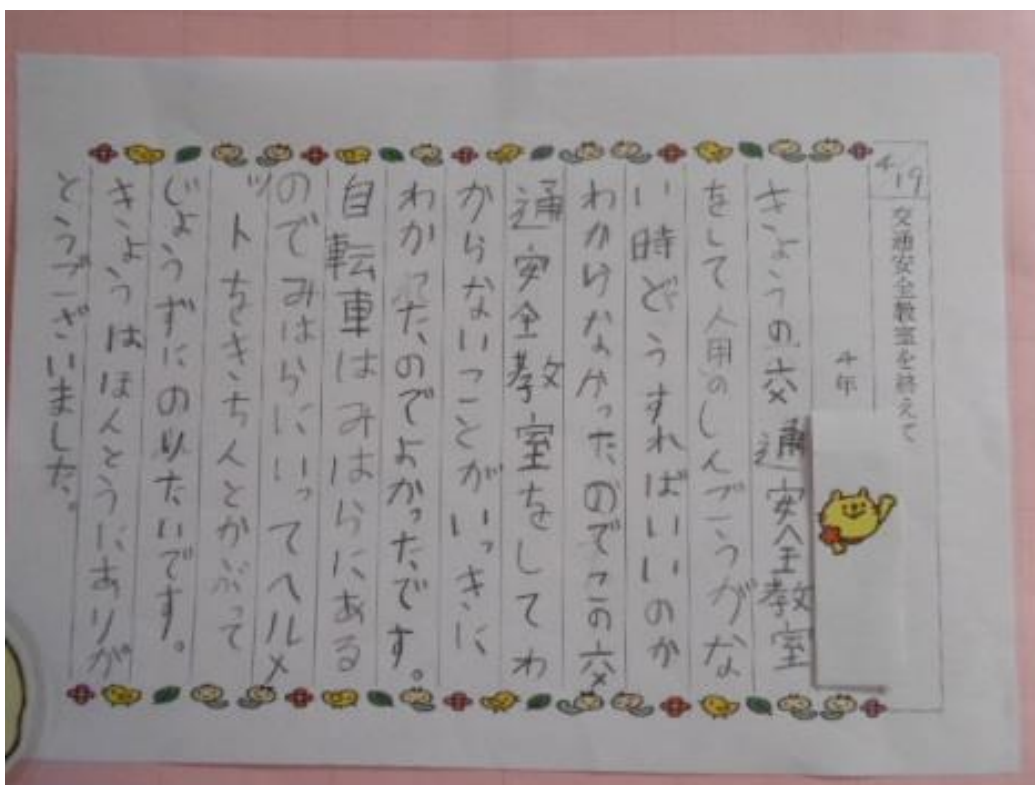 4/19
交通安全教室を終えて
4年
きょうの交通安全教室
をして人用のしんごうがな
い時どうすればいいのか
わかけなかったのでこの交
通安全教室をしてわ
からないことがいっきに
わかったのでよかったです。
自転車はみはらにある
のでみはらにいってヘルメ
ットをきちんとかぶって
じょうずにの以たいです。
きょうはほんとうにありが
とうございました。